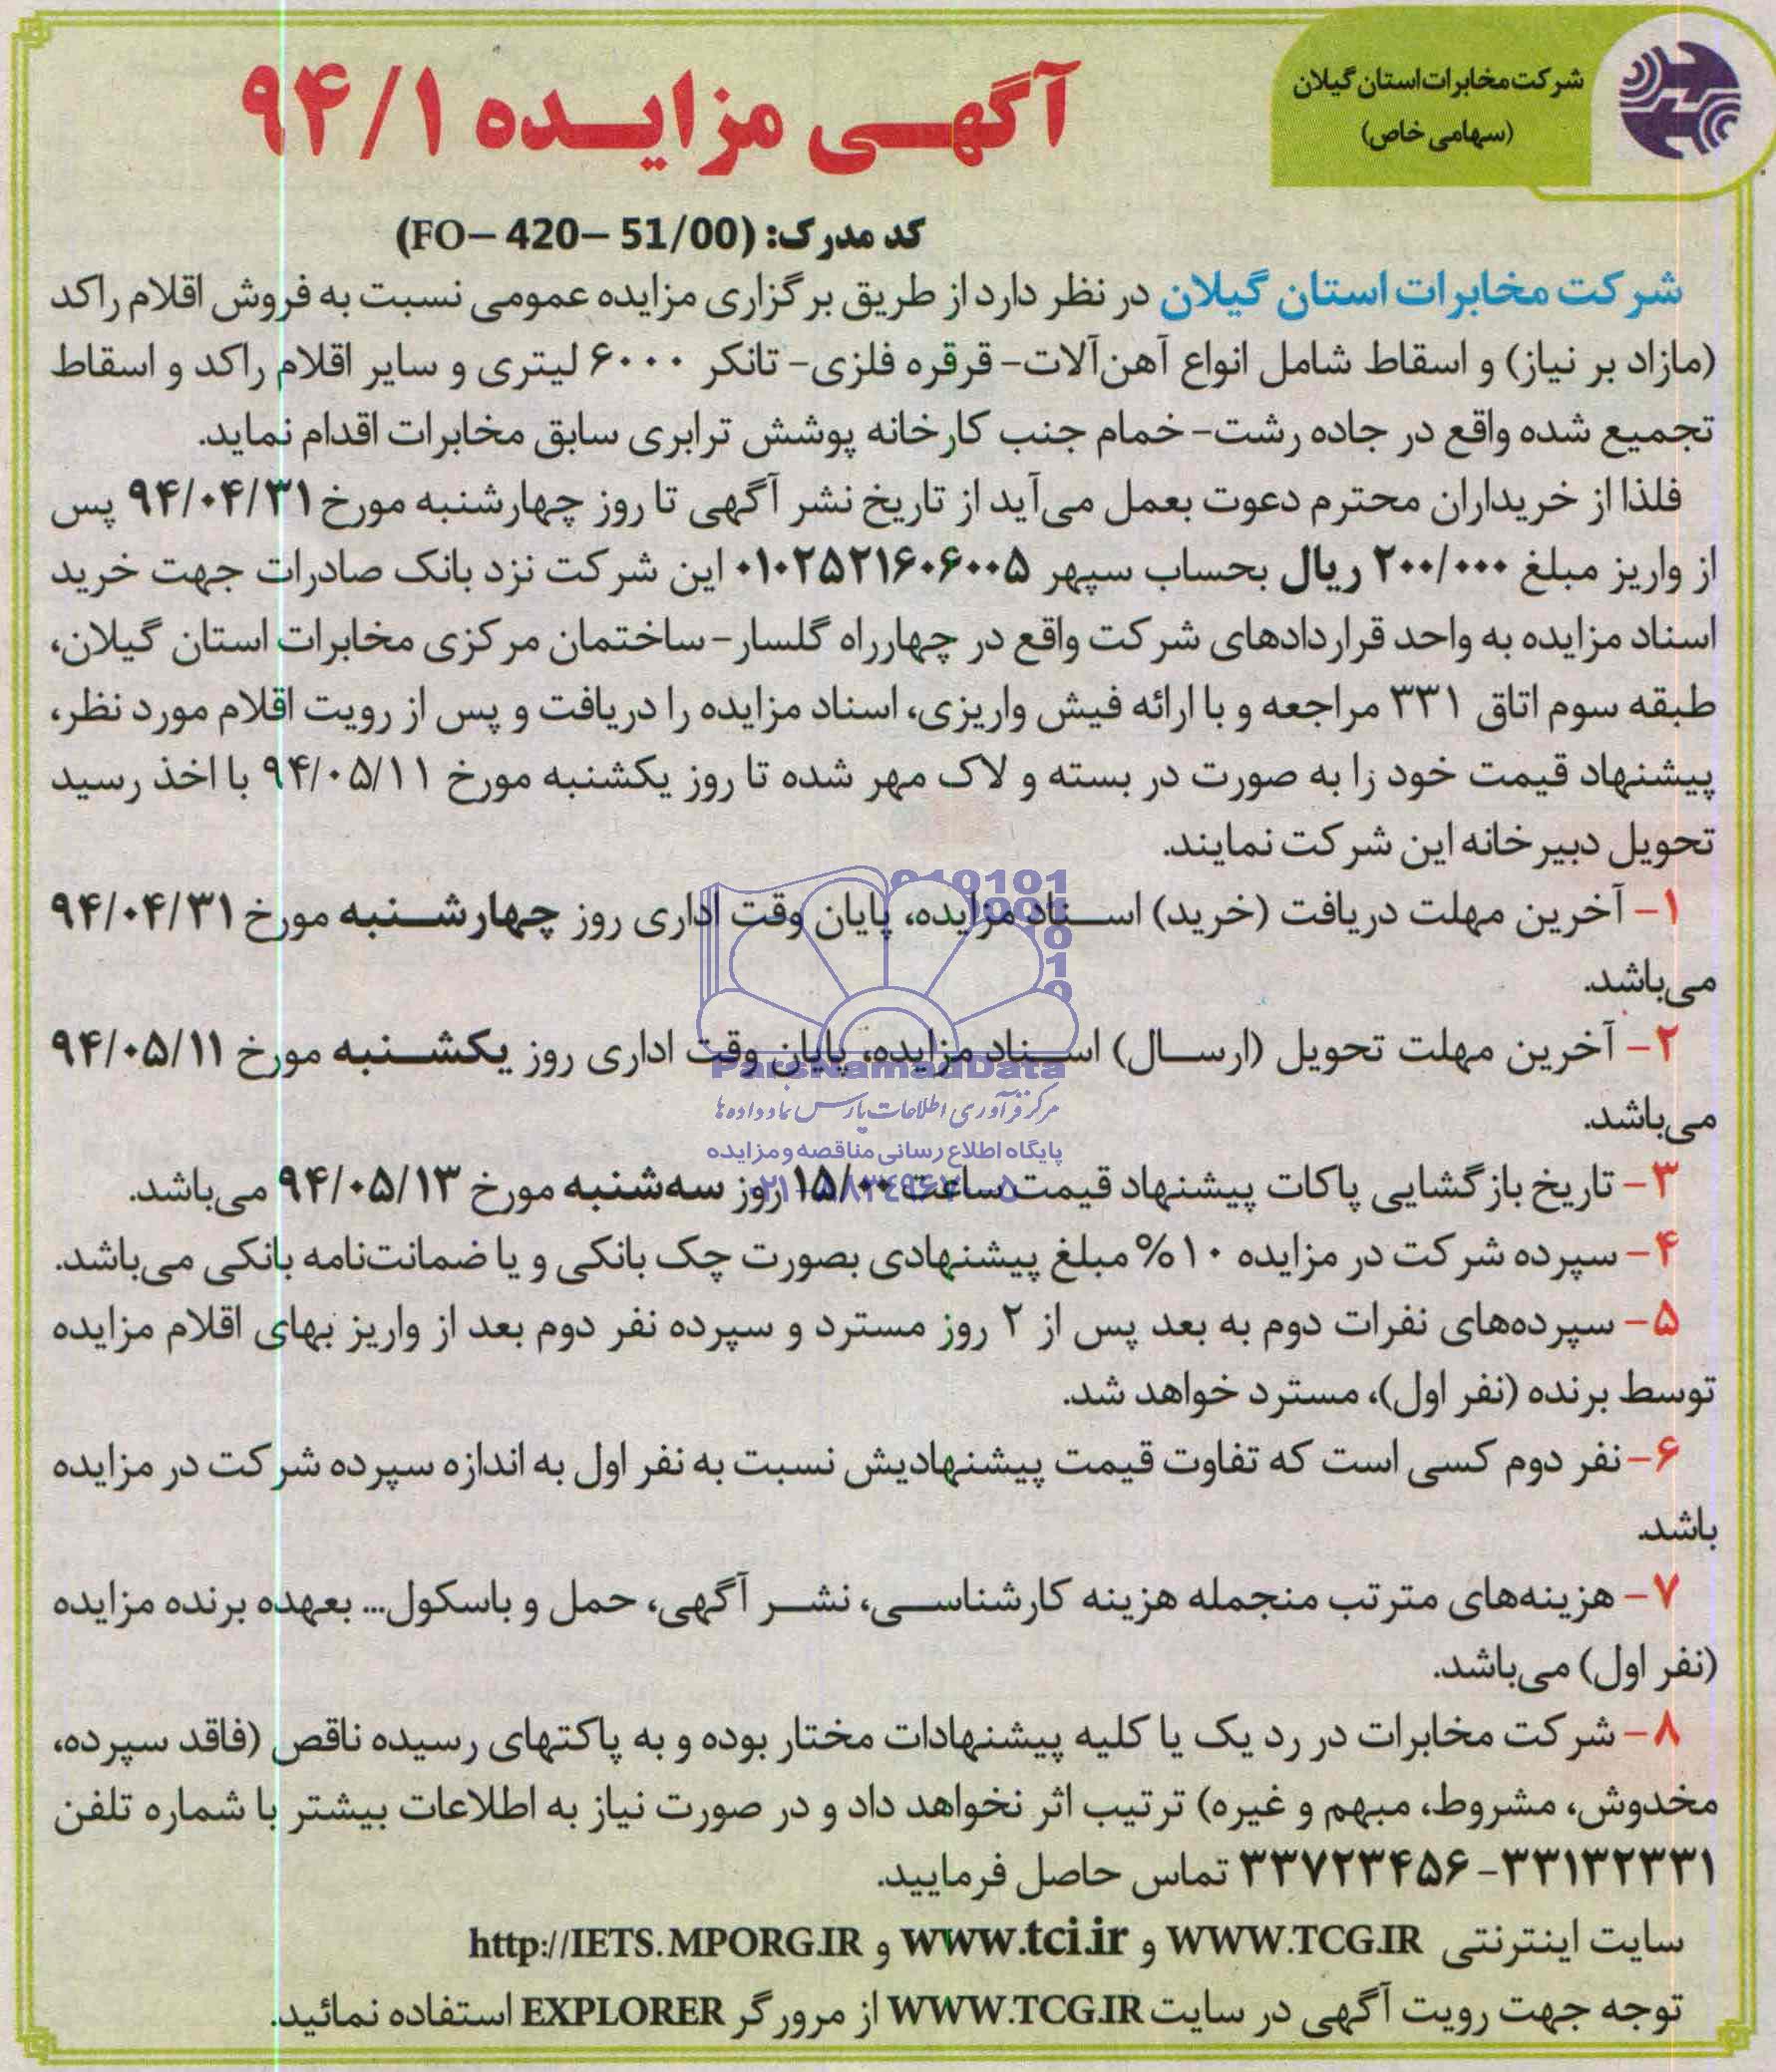 شرکت مخابرات استان گیلان
(سهامی خاص)
آگهی مزایده ۹۴/۱
کد مدرک: (FO– 420– 51/00)
شرکت مخابرات استان گیلان در نظر دارد از طریق برگزاری مزایده عمومی نسبت به فروش اقلام راکد
(مازاد بر نیاز) و اسقاط شامل انواع آهن‌آلات- قرقره فلزی- تانکر ۶۰۰۰ لیتری و سایر اقلام راکد و اسقاط
تجمیع شده واقع در جاده رشت- خمام جنب کارخانه پوشش ترابری سابق مخابرات اقدام نماید.
فلذا از خریداران محترم دعوت بعمل می‌آید از تاریخ نشر آگهی تا روز چهارشنبه مورخ ۹۴/۰۴/۳۱ پس
از واریز مبلغ ۲۰۰/۰۰۰ ریال بحساب سپهر ۰۱۰۲۵۲۱۶۰۶۰۰۵ این شرکت نزد بانک صادرات جهت خرید
اسناد مزایده به واحد قراردادهای شرکت واقع در چهارراه گلسار- ساختمان مرکزی مخابرات استان گیلان،
طبقه سوم اتاق ۳۳۱ مراجعه و با ارائه فیش واریزی، اسناد مزایده را دریافت و پس از رویت اقلام مورد نظر،
پیشنهاد قیمت خود را به صورت در بسته و لاک مهر شده تا روز یکشنبه مورخ ۹۴/۰۵/۱۱ با اخذ رسید
تحویل دبیرخانه این شرکت نمایند.
۱- آخرین مهلت دریافت (خرید) اسناد مزایده، پایان وقت اداری روز چهارشنبه مورخ ۹۴/۰۴/۳۱
می‌باشد.
۲- آخرین مهلت تحویل (ارسال) اسناد مزایده، پایان وقت اداری روز یکشنبه مورخ ۹۴/۰۵/۱۱
می‌باشد.
ParsNamadData
مرکز فرآوری اطلاعات پارس نماد داده‌ها
پایگاه اطلاع رسانی مناقصه و مزایده
۳- تاریخ بازگشایی پاکات پیشنهاد قیمت ساعت ۱۵/۰۰ روز سه‌شنبه مورخ ۹۴/۰۵/۱۳ می‌باشد.
۴- سپرده شرکت در مزایده ۱۰% مبلغ پیشنهادی بصورت چک بانکی و یا ضمانت‌نامه بانکی می‌باشد.
۵- سپرده‌های نفرات دوم به بعد پس از ۲ روز مسترد و سپرده نفر دوم بعد از واریز بهای اقلام مزایده
توسط برنده (نفر اول)، مسترد خواهد شد.
۶- نفر دوم کسی است که تفاوت قیمت پیشنهادیش نسبت به نفر اول به اندازه سپرده شرکت در مزایده
باشد.
۷- هزینه‌های مترتب منجمله هزینه کارشناسی، نشر آگهی، حمل و باسکول... بعهده برنده مزایده
(نفر اول) می‌باشد.
۸- شرکت مخابرات در رد یک یا کلیه پیشنهادات مختار بوده و به پاکتهای رسیده ناقص (فاقد سپرده،
مخدوش، مشروط، مبهم و غیره) ترتیب اثر نخواهد داد و در صورت نیاز به اطلاعات بیشتر با شماره تلفن
۳۳۷۲۳۴۵۶-۳۳۱۳۲۳۳۱ تماس حاصل فرمایید.
سایت اینترنتی WWW.TCG.IR و www.tci.ir و http://IETS.MPORG.IR
توجه جهت رویت آگهی در سایت WWW.TCG.IR از مرورگر EXPLORER استفاده نمائید.